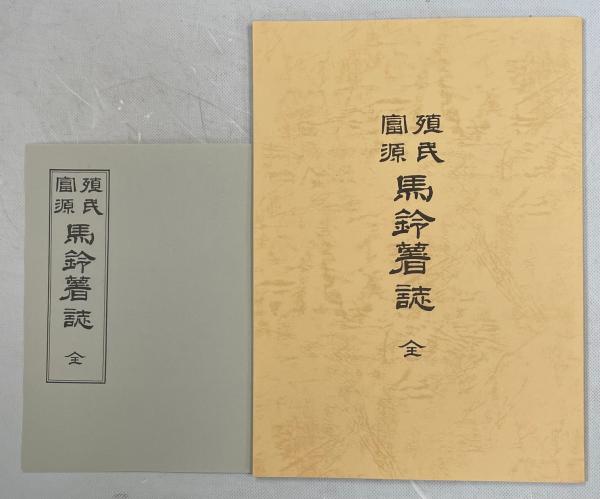 殖民
富源
馬鈴薯誌
全
殖民
富源
馬鈴薯誌
全